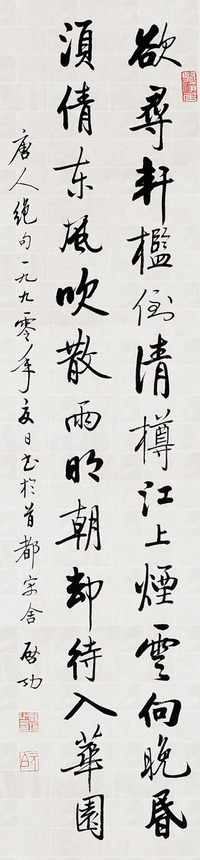 欲尋軒檻倒清樽江上煙雲向晚昏
須倩东風吹散雨明朝却待入華園
唐人绝句一九九零年夏日书於首都寓舍 啟功